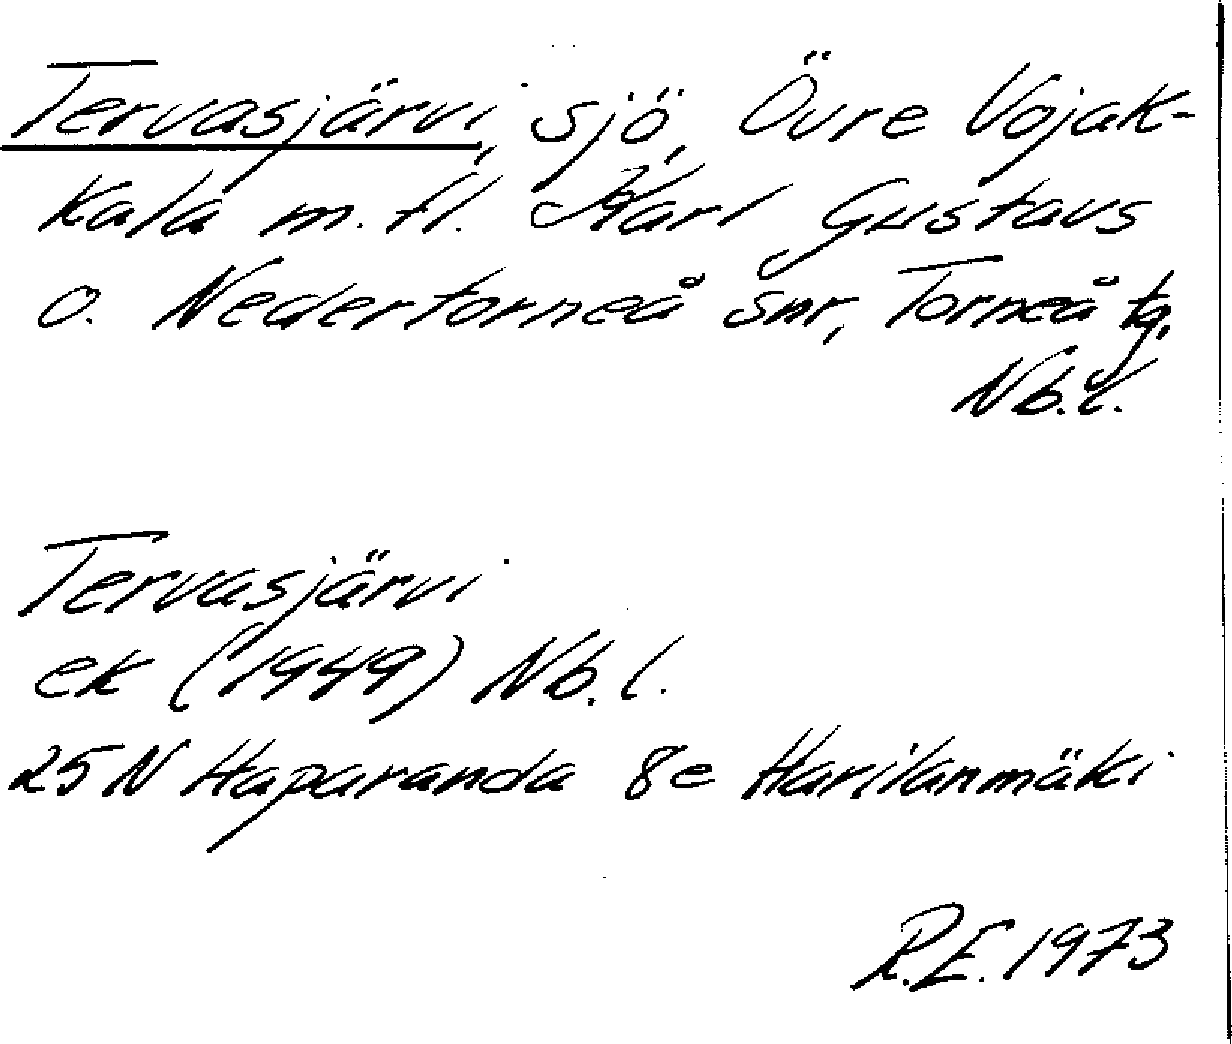 Tervasjärvi, sjö, Övre Vojak-
kala m.fl. Karl Gustavs
o. Nedertorneå snr, Torneå tg,
Nb.l.
Tervasjärvi
ek (1949) Nb.l.
25N Haparanda 8e Harilanmäki
R.E. 1973